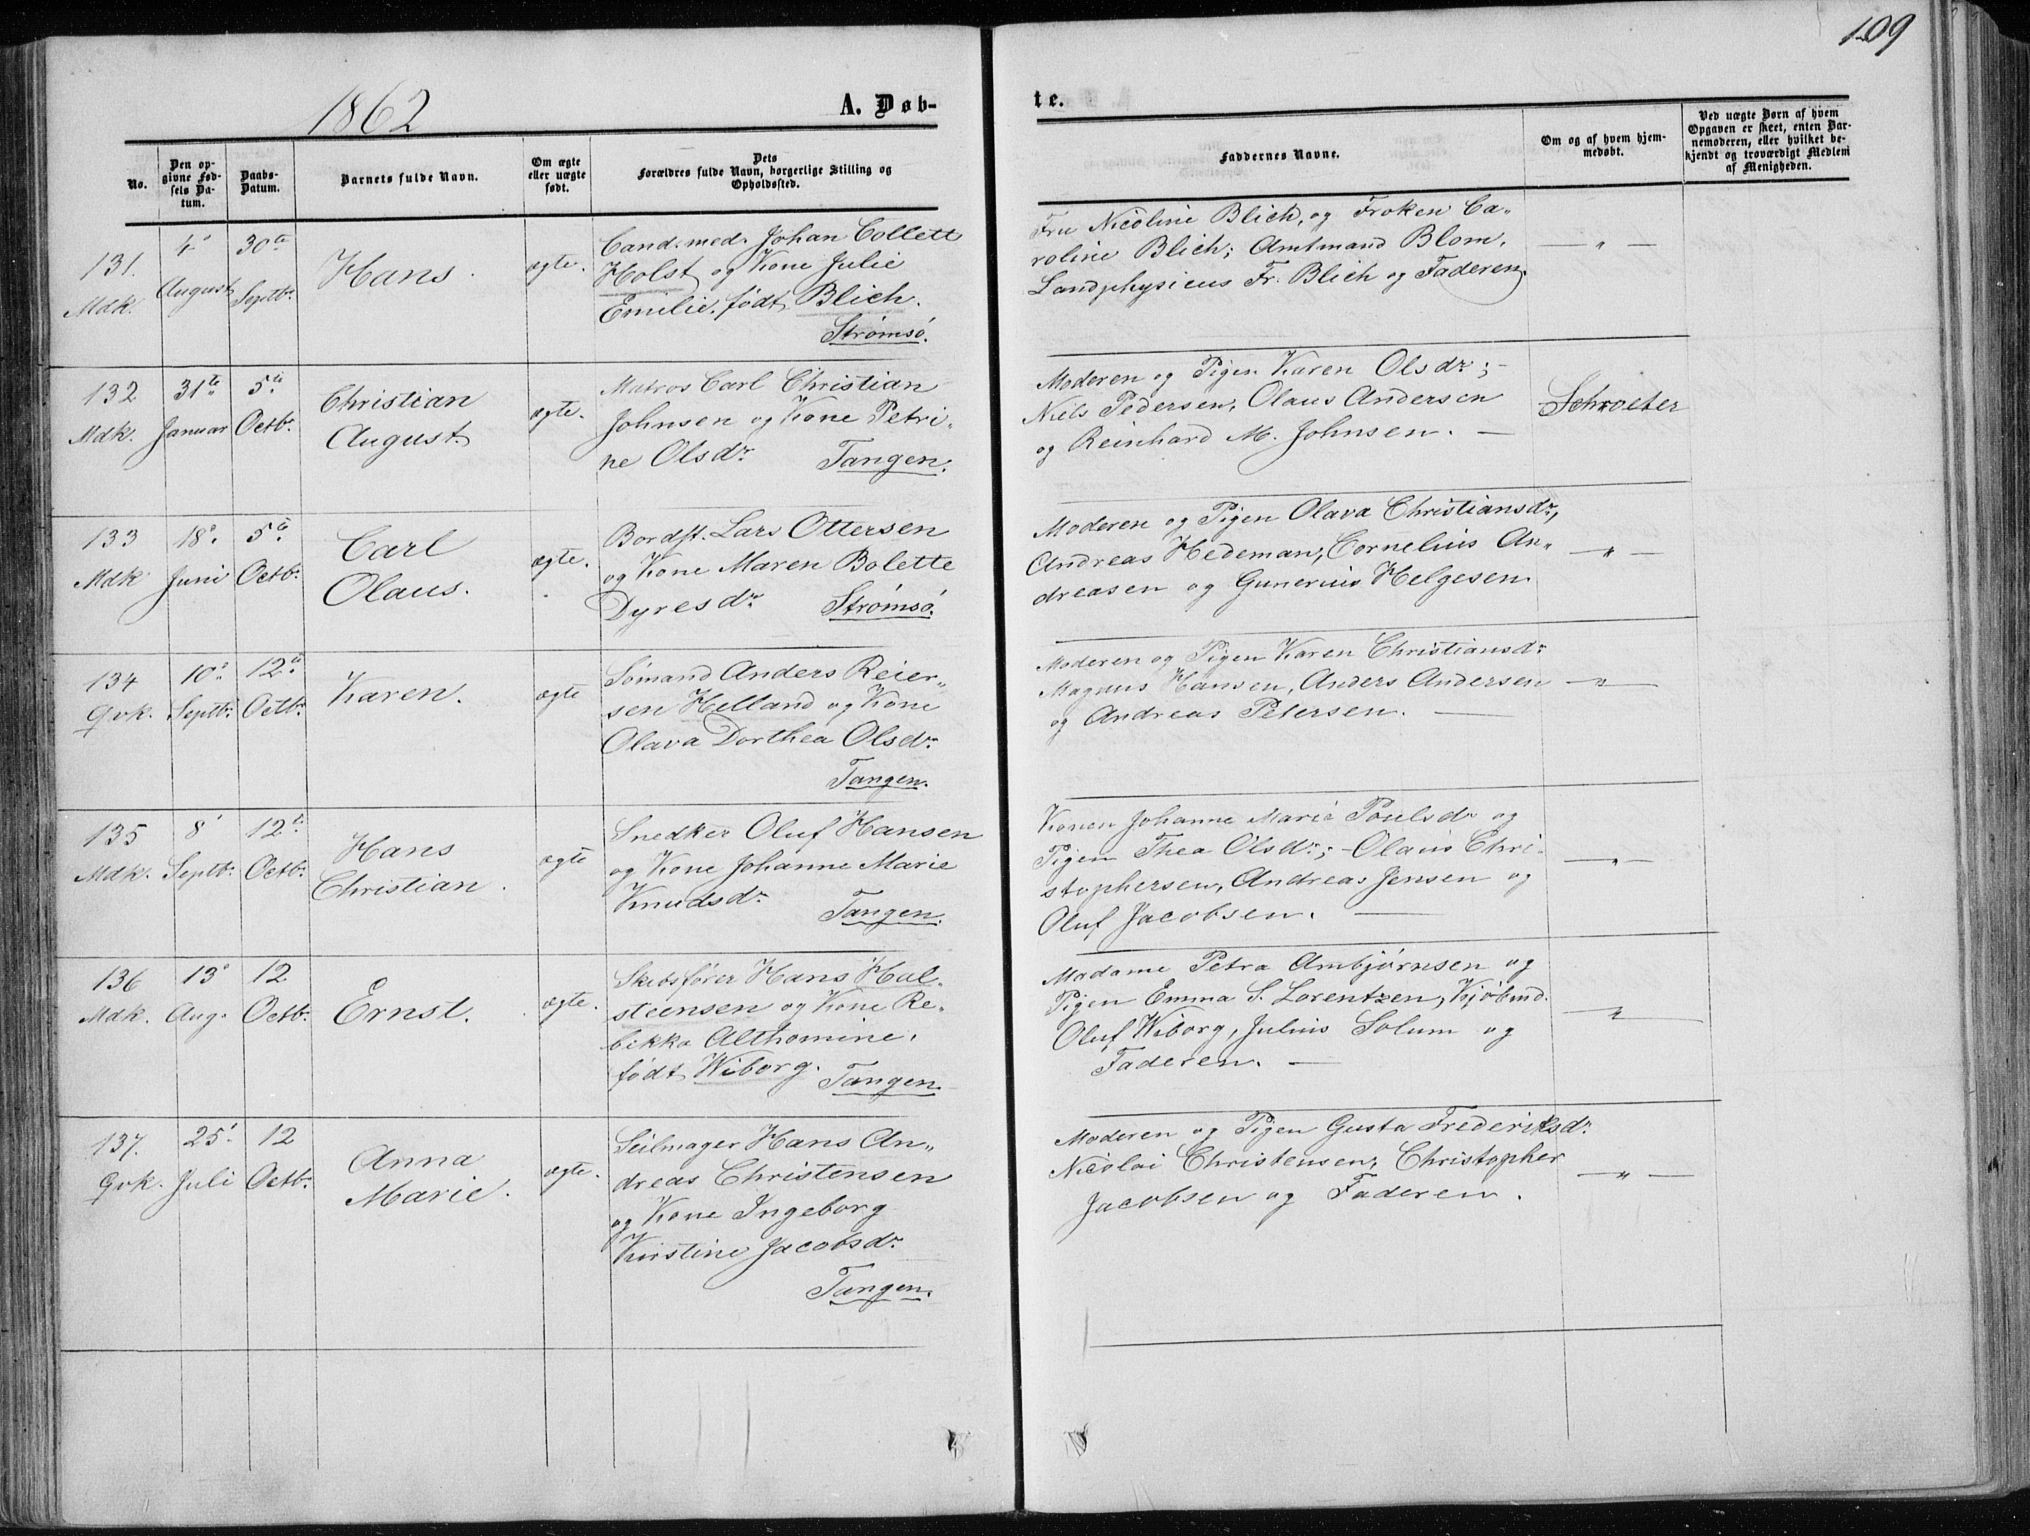 109
1862
A. Døb-
te.
No.
Den op-
givne Fød-
sels Da-
tum.
Daabs-
Datum.
Barnets fulde Navn.
Om ægte
eller uægte
født.
Dets
Forældres fulde Navn, borgerlige Stilling og
Opholdssted.
Faddernes Navne.
Om og af hvem hjem-
medøbt.
Ved uægte Børn af hvem
Opgaven er skeet, enten Bar-
nemoderen, eller hvilket be-
kjendt og troværdigt Medlem
af Menigheden.
131.
Mdk.
4
August
30te
Septbr.
Hans
ægte.
Cand. med. Johan Collett
Holst og Kone Julie
Emilie, født Blich.
Strømsö.
Fru Nicoline Blich, og Frøken Ca-
roline Blich; Amtmand Blom,
Landphysicus Fr. Blich og Faderen.
— " —
132
Mdk.
31te
Januar
5te
Octbr.
Christian
August.
ægte.
Matros Carl Christian
Johnsen og Kone Petri-
ne Olsdr.
Tangen.
Moderen og Pigen Karen Olsdr; -
Niels Pedersen, Olaus Andersen
og Reinhard M. Johnsen. —
Schroeter
133
Mdk
18.
Juni
5te
Octbr.
Carl
Olaus.
ægte.
Bordst. Lars Ottersen
og Kone Maren Bolette
Dyresdr.
Strømsö.
Moderen og Pigen Olava Christiansdr,
Andreas Hedeman, Cornelius An-
dreasen og Gunerius Helgesen.
— " —
134
Qvk.
10
Septbr.
12te
Octbr.
Karen.
ægte
Sömand Anders Reier-
sen Helland og Kone
Olava Dorthea Olsdr.
Tangen.
Moderen og Pigen Karen Christiansdr
Magnus Hansen, Anders Andersen
og Andreas Petersen. —
— " —
135
Mdk.
8
Septbr.
12te
Octbr.
Hans
Christian.
ægte
Snedker Oluf Hansen
og Kone Johanne Marie
Knudsdr.
Tangen.
Konen Johanne Marie Poulsdr og
Pigen Thea Olsdr; - Olaus Chri-
stophersen, Andreas Jensen og
Oluf Jacobsen. —
— " —
136
Mdk.
13
Aug.
12
Octbr.
Ernst.
ægte.
Skibsfører Hans Hal-
steensen og Kone Re-
bikka Althomine,
født Wiborg.
Tangen
Madame Petra Ambjørnsen og
Pigen Emma S. Lorentzen, Kjöbmd.
Oluf Wiborg, Julius Solum og
Faderen. —
— " —
137.
Qvk.
25
Juli
12
Octbr.
Anna
Marie.
ægte.
Seilmager Hans An-
dreas Christensen
og Kone Ingeborg
Kirstine Jacobsdr.
Tangen.
Moderen og Pigen Gusta Frederiksdr
Nicolai Christensen, Christopher
Jacobsen og Faderen.
— " —